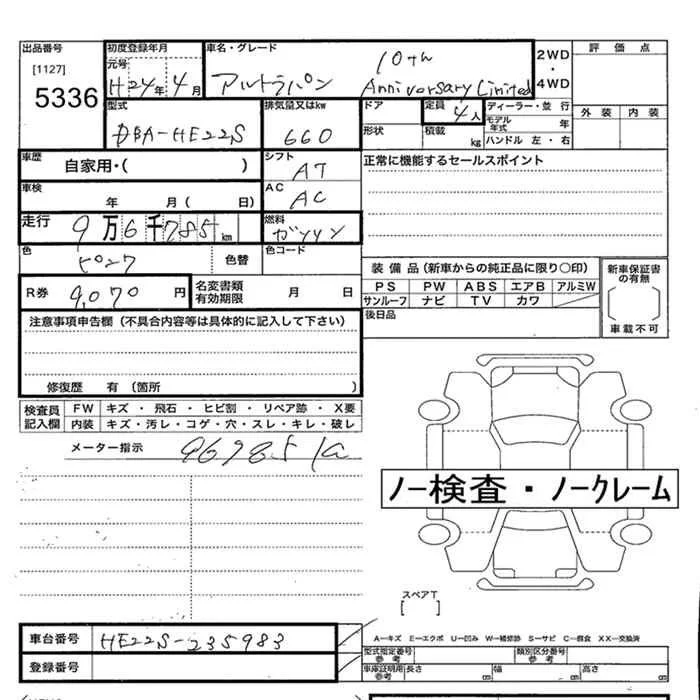 出品番号 初度登録年月 車名・グレード 2WD・4WD 評価点
[1127] 元号 10th
5336 H24年4月 アルトラパン Anniversary Limited
型式 排気量又はkw ドア 定員 4人 ディーラー・並行 外装 内装
DBA-HE22S 660 形状 積載 kg モデル年式 年
ハンドル 左・右
車歴 自家用・( ) シフト AT 正常に機能するセールスポイント
車検 年 月( 日) AC AC
走行 9万6千785km 燃料 ガソリン
色 ピンク 色替 色コード
装備品(新車からの純正品に限り○印) 新車保証書の有無
R券 9,070円 名変書類有効期限 月 日 PS PW ABS エアB アルミW
サンルーフ ナビ TV カワ
注意事項申告欄(不具合内容等は具体的に記入して下さい) 後日品 車載不可
修復歴 有(箇所 )
検査員記入欄 FW キズ・飛石・ヒビ割・リペア跡・X要
内装 キズ・汚レ・コゲ・穴・スレ・キレ・破レ
メーター指示 96785K
ノー検査・ノークレーム
スペアT
[ ]
車台番号 HE22S-235983 A―キズ E―エクボ U―凹み W―補修跡 S―サビ C―腐食 XX―交換済
型式指定番号参考 類別区分番号参考
登録番号 車庫証明用参考 長さ cm 幅 cm 高さ cm